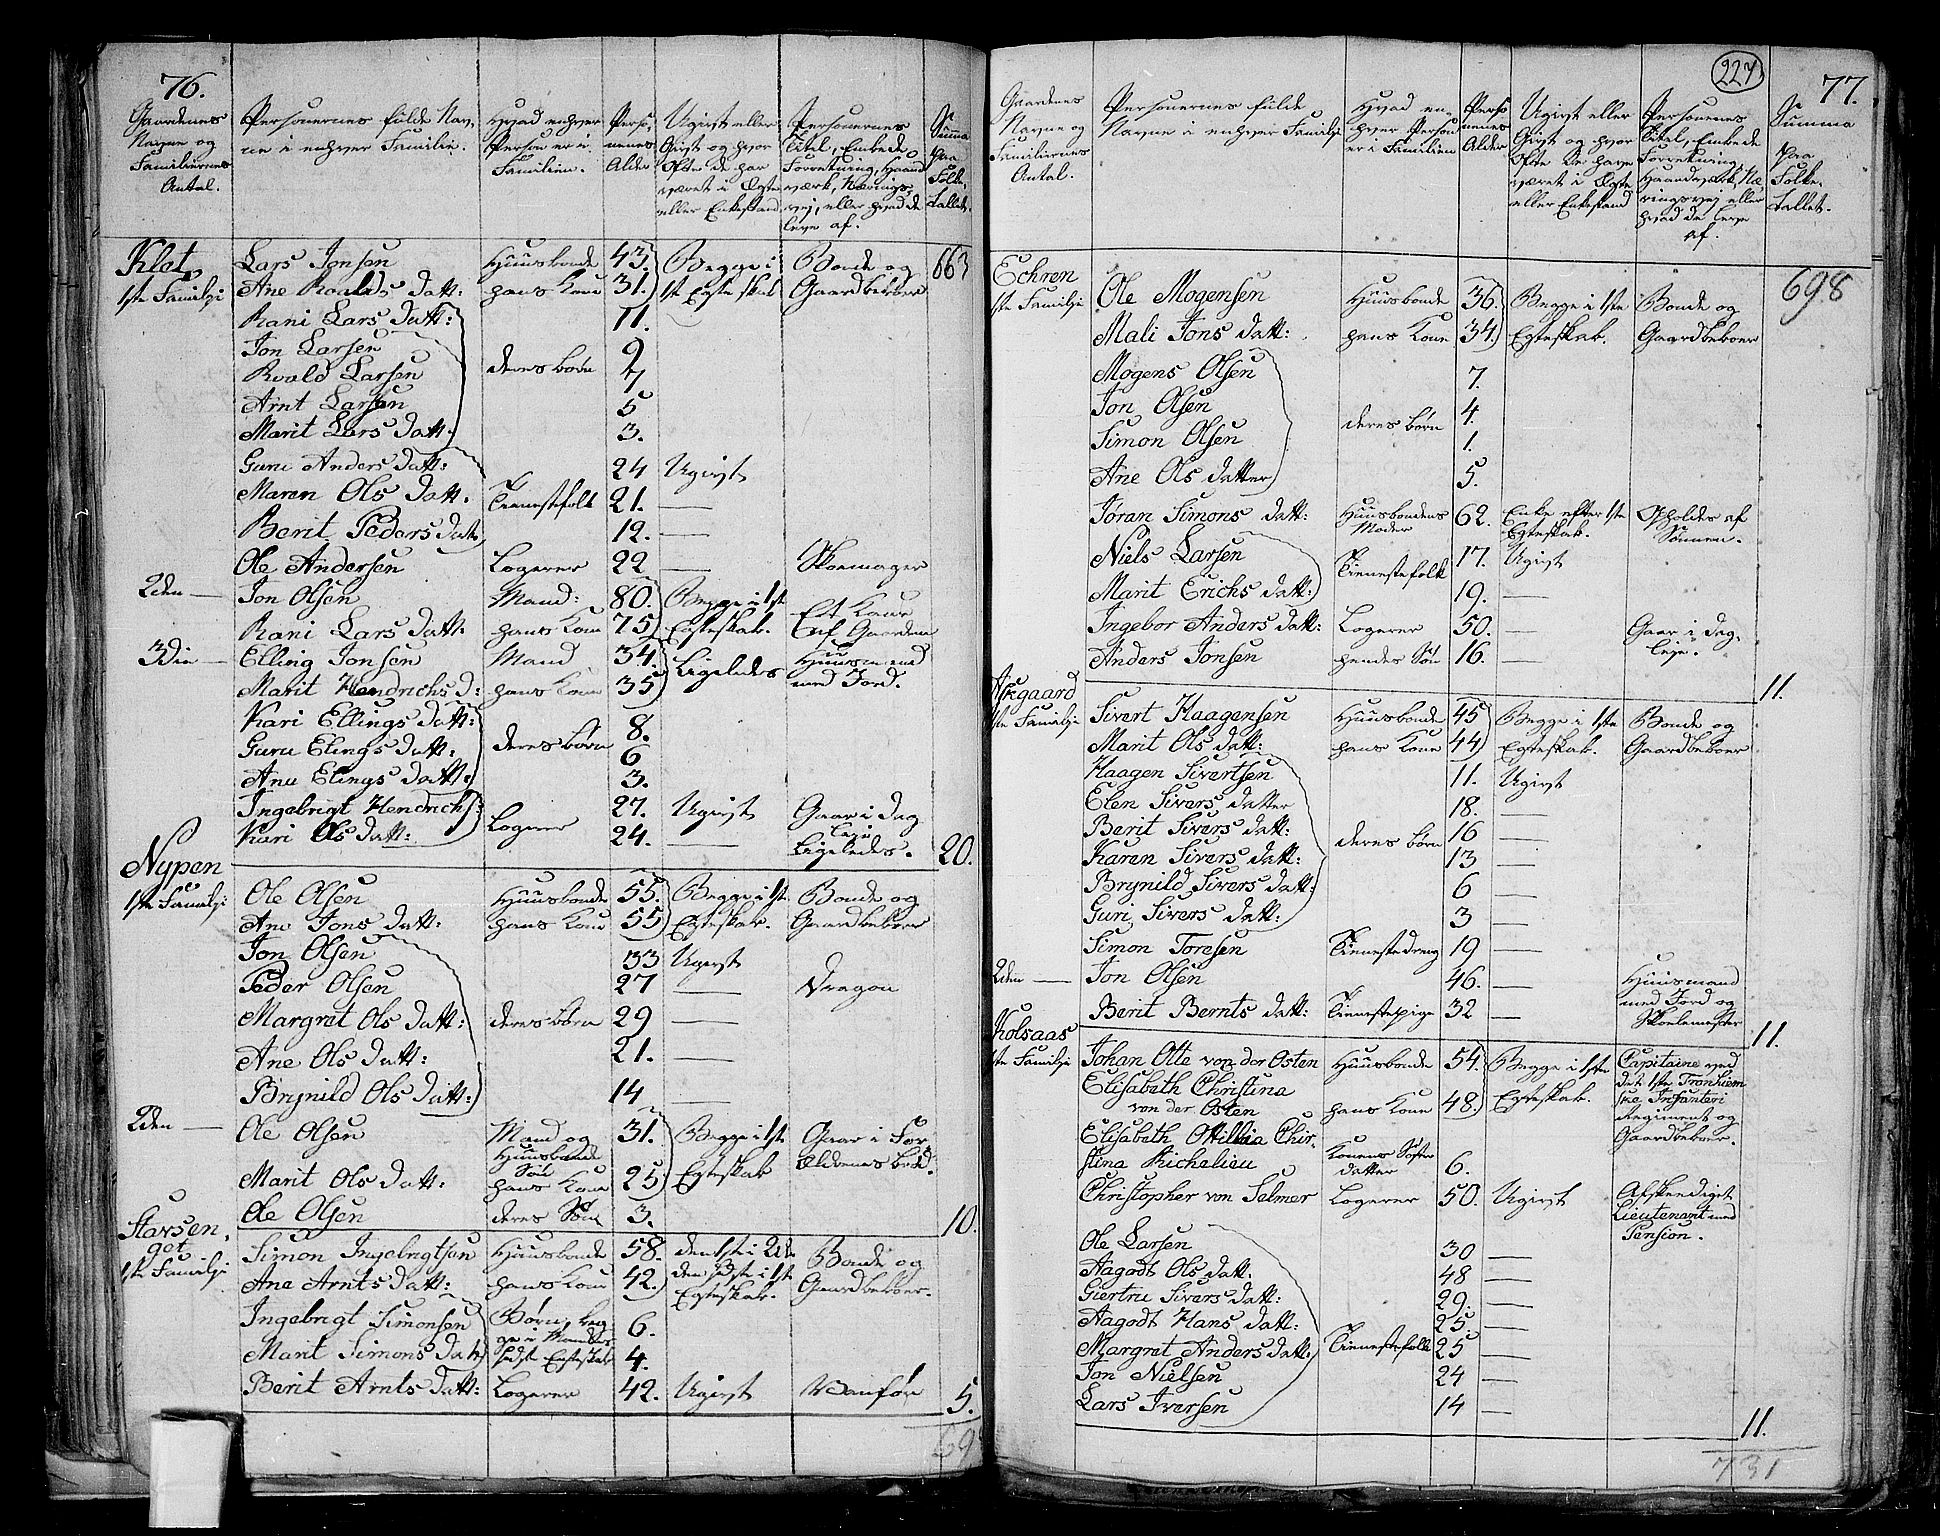 76.
Gaardenes Navne og Familiernes Antal.
Personernes fulde Navne i enhver Familie.
Hvad enhver Person er i Familien.
Personernes Alder
Ugivt eller Givt og hvor Ofte de har været i Egte eller Enkestand
Personernes Titel, Embede Forretning, Haandværk, Næringsvej, eller hvad de leve af.
Summa Paa Folketallet.
Klet 1ste Familie Lars Jonsen Huusbonde 43. Begge i Bonde og 663
Ane Roalds Datt: hans Kone 31. 1st Egteskab Gaardbeboer
Rani Lars Datt: 11.
Jon Larsen 9
Roald Larsen deres børn 7
Arnt Larsen 5
Marit Lars Datt. 3.
Guru Anders Datt: 24 Ugivt
Maren Ols Datt. Tienestefolk 21. —
Berit Peders Datt 12. —
Ole Andersen Logerer 22 — Skoemager
2den — Jon Olsen Mand: 80. Begge i 1st Et Kaar
Rani Lars Datt: hans Kone 75 Egteskab. af Gaarden
3die — Elling Jonsen Mand 34. Ligeledes Huusmand
Marit Hendrichs D: hans Kone 35 med Jord.
Kari Ellings Datt: 8.
Guru Elings Datt: deres børn 6
Ane Elings Datt: 3.
Ingebrigt Hendrichs: 27. Ugivt Gaar i Dag
Kari Ols Datt: Logerer 24. — Leje Ligeledes. 20.
Nypen
1ste Familie Ole Olsen Huusbonde 55. Begge i 1st Bonde og
Ane Jons Datt: hans Kone 55 Egteskab. Gaardbeboer
Jon Olsen 33 Ugivt
Peder Olsen 27 — Dragon
Margret Ols Datt: deres børn 29 —
Ane Ols Datt: 21. —
Brynild Ols Datt: 14 —
2den — Ole Olsen Mand og Huusbonde Søn 31. Begge i 1st Gaar i For
Marit Ols Datt: hans Kone 25 Egteskab ældrenes brød.
Ole Olsen deres Søn 3. 10.
Starsen,
get
1ste Familie Simon Ingebrigtsen Huusbonde 58. den 1ste i 2det Bonde og
Ane Arnts Datt: hans Kone 42. den sidste i 1ste Egteskab. Gaardbeboer.
Ingebrigt Simonsen Børn, beg 6.
Marit Simons Datt ge i Mandens sidste Egteskab 4.
Berit Arnts Datt: Logerer 42. Ugivt Vanfør 5.
227
77.
Gaardenes Navne og Familiernes Antal.
Personernes fulde Navne i enhver Familie
Hvad enhver Person er i Familien
Personernes Alder
Ugivt eller Givt og hvor Ofte de have været i Egte eller Enkestand
Personernes Titel, Embede Forretning, Haandværk, Næringsvej eller hvad de leve af.
Summa Paa Folketallet.
Echren 698
1ste Familie Ole Mogensen Huusbonde 36. Begge i 1ste Bonde og
Mali Jons Datt: hans Kone 34. Egteskab. Gaardbeboer
Mogens Olsen 7.
Jon Olsen 4.
Simon Olsen deres børn 1.
Ane Ols Datter 5.
Jøran Simons Datt: Huusbondens Moder 62. Enke efter 1ste Egteskab. Opholdes af Sønnen.
Niels Larsen Tienestefolk 17. Ugivt
Marit Erichs Datt: 19. —
Ingebor Anders Datt: Logerer 50. — Gaar i Dag,
Anders Jonsen hendes Søn 16. — leje. 11.
Akgaard
1ste Familie Sivert Haagensen Huusbonde 45 Begge i 1ste Bonde og
Marit Ols Datt: hans Kone 44 Egteskab. Gaardbeboer
Haagen Sivertsen 11. Ugivt
Elen Sivers Datter 18. —
Berit Sivers Datt: deres børn 16 —
Karen Sivers Datt: 13 —
Brynild Sivers Datt: 6 —
Guri Sivers Datt: 3 —
Simon Toresen Tienestedreng 19 —
2den — Jon Olsen 46. — Huusmand med Jord og
Berit Bernts Datt: Tienestepige 32 — Skolemester 11.
Kolsaas
1ste Familie Johan Otte von der Osten Huusbonde 54. Begge i 1ste Capitaine ved
Elisabeth Christina det 1ste Tronhiem
von der Osten hans Kone 48. Egteskab. ske Infanteri
Elisabeth Ottillia Chri- Regiment og Gaardbeboer.
stina Richelieu Konens Søster datter 6.
Christopher von Selmer Logerer 50. Ugivt Afskediget Lieutenant med Pension.
Ole Larsen 30 —
Aagodt Ols Datt. 48 —
Giertru Sivers Datt: 29. —
Aagodt Hans Datt: 25. —
Margret Anders Datt: Tienestefolk 25 —
Jon Nielsen 24 —
Lars Iversen 14 —
11.
731